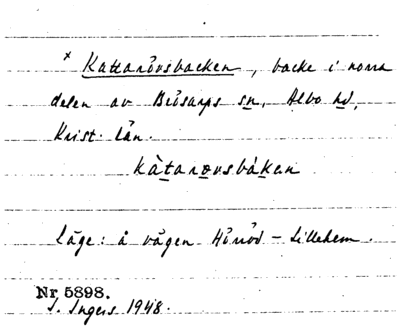 × Kattarövsbacken, backe i norra
delen av Brösarps sn, Albo hd,
Krist. län.
kàtarøvsbákan
Läge: å vägen Hörröd - Lillehem.
Nr 5898.
I. Ingers 1948.